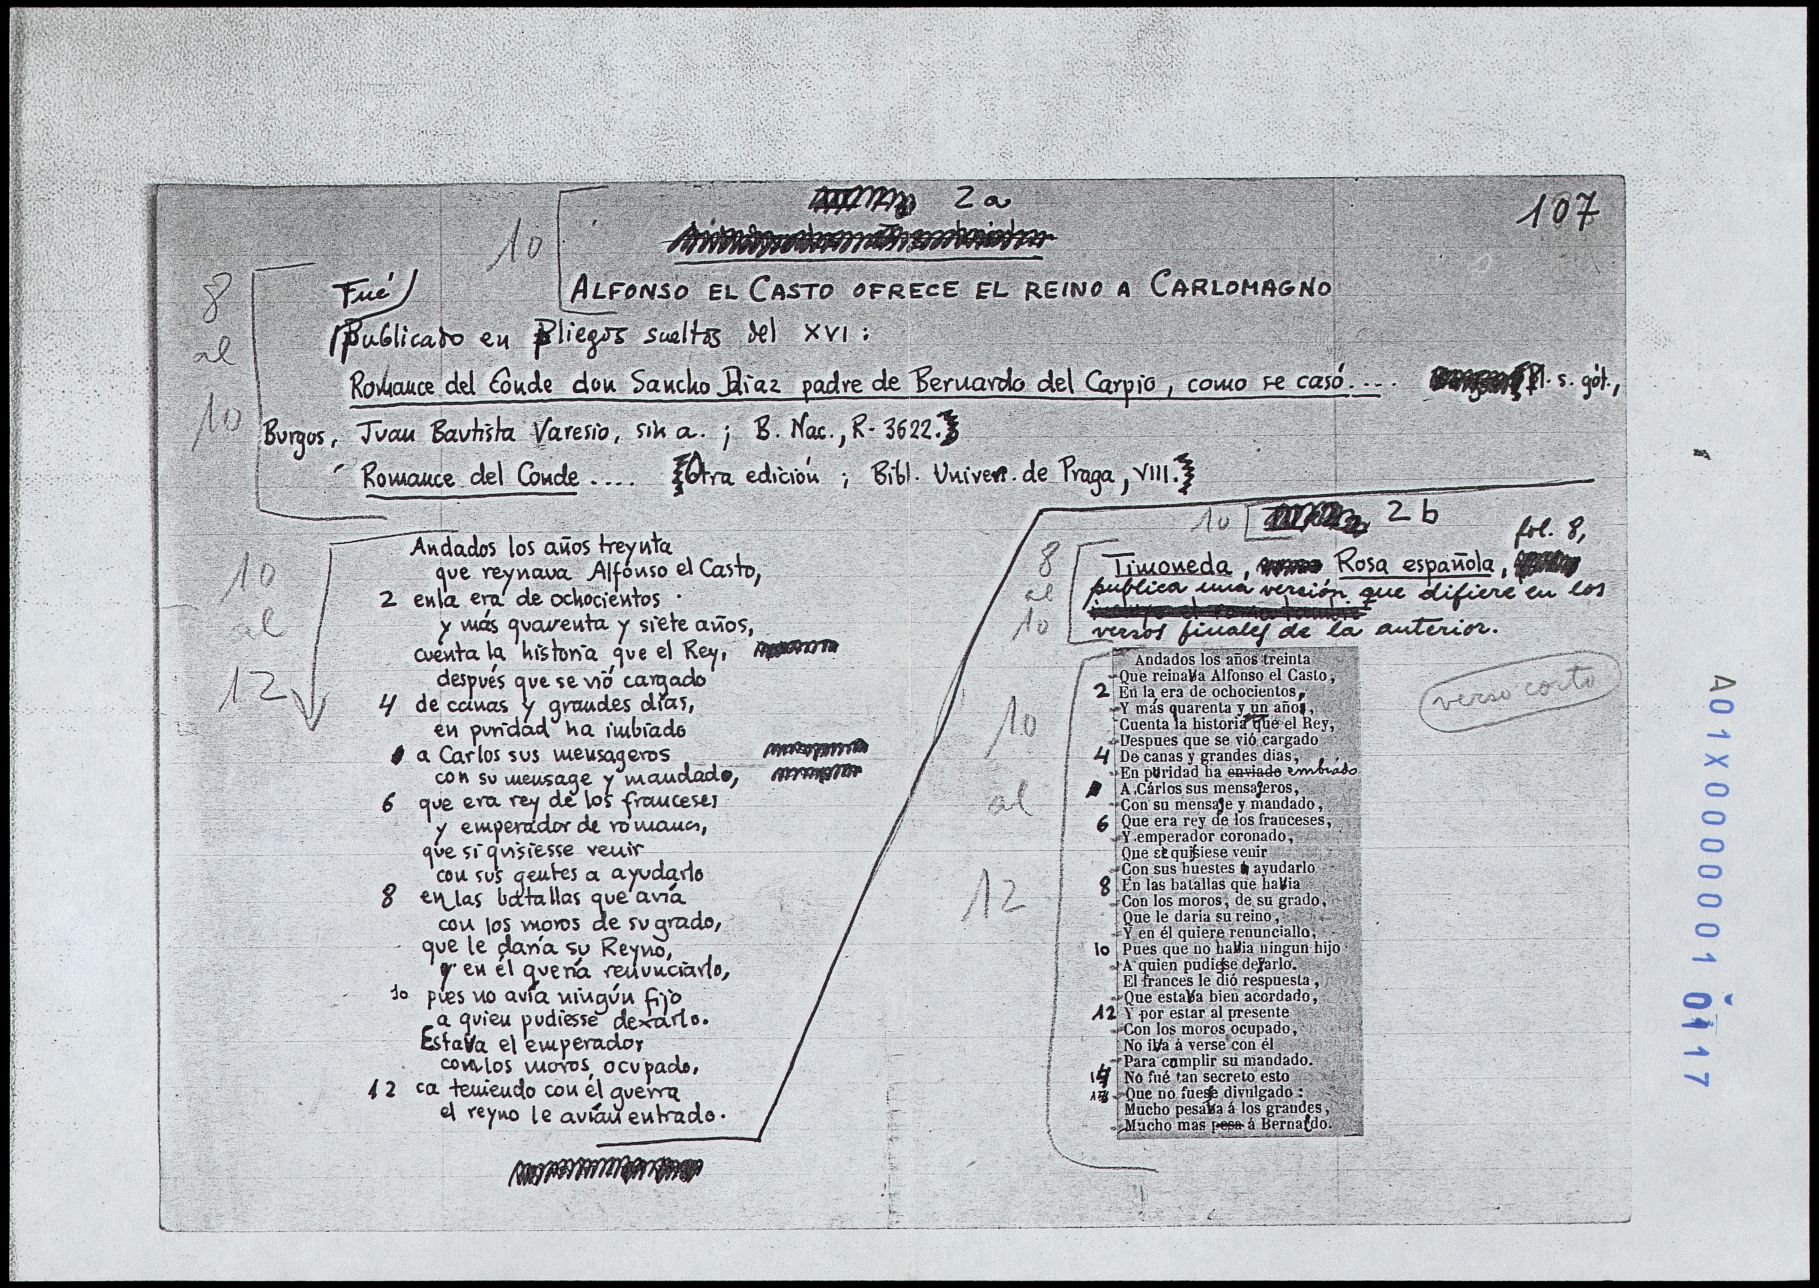 2a
107
10
ALFONSO EL CASTO OFRECE EL REINO A CARLOMAGNO
8
al
10
Fué
Publicado en Pliegos sueltos del XVI:
Romance del Conde don Sancho Diaz padre de Bernardo del Carpio, como se casó.... Pl. s. gót.,
Burgos, Juan Bautista Varesio, sin a. ; B. Nac., R-3622.
Romance del Conde .... Otra edición ; Bibl. Univers. de Praga, VIII.
10
al
12
Andados los años treynta
que reynava Alfonso el Casto,
2 en la era de ochocientos
y más quarenta y siete años,
cuenta la historia que el Rey,
después que se vió cargado
4 de canas y grandes días,
en puridad ha imbiado
a Carlos sus mensageros
con su mensage y mandado,
6 que era rey de los franceses
y emperador de romanos,
que si quisiesse venir
con sus gentes a ayudarlo
8 en las batallas que avía
con los moros de su grado,
que le daría su Reyno,
y en él quería renunciarlo,
10 pues no avía ningún fijo
a quien pudiesse dexarlo.
Estava el emperador
con los moros ocupado,
12 ca teniendo con él guerra
el reyno le avían entrado.
10
2b
8
al
10
Timoneda, Rosa española, fol. 8,
publica una versión que difiere en los
versos finales de la anterior.
verso corto
10
al
12
Andados los años treinta
Que reinava Alfonso el Casto,
2 En la era de ochocientos,
Y más quarenta y un años,
Cuenta la historia que el Rey,
Despues que se vió cargado
4 De canas y grandes dias,
En puridad ha enviado embiado
A Cárlos sus mensajeros,
Con su mensaje y mandado,
6 Que era rey de los franceses,
Y emperador coronado,
Que si quisiese venir
Con sus huestes a ayudarlo
8 En las batallas que havia
Con los moros, de su grado,
Que le daria su reino,
Y en él quiere renunciallo,
10 Pues que no havia ningun hijo
A quien pudiese dejarlo.
El frances le dió respuesta,
Que estava bien acordado,
12 Y por estar al presente
Con los moros ocupado,
No iva á verse con él
Para cumplir su mandado.
14 No fué tan secreto esto
Que no fuese divulgado:
Mucho pesava á los grandes,
Mucho mas pesa á Bernardo.
A01X0000000001
0117